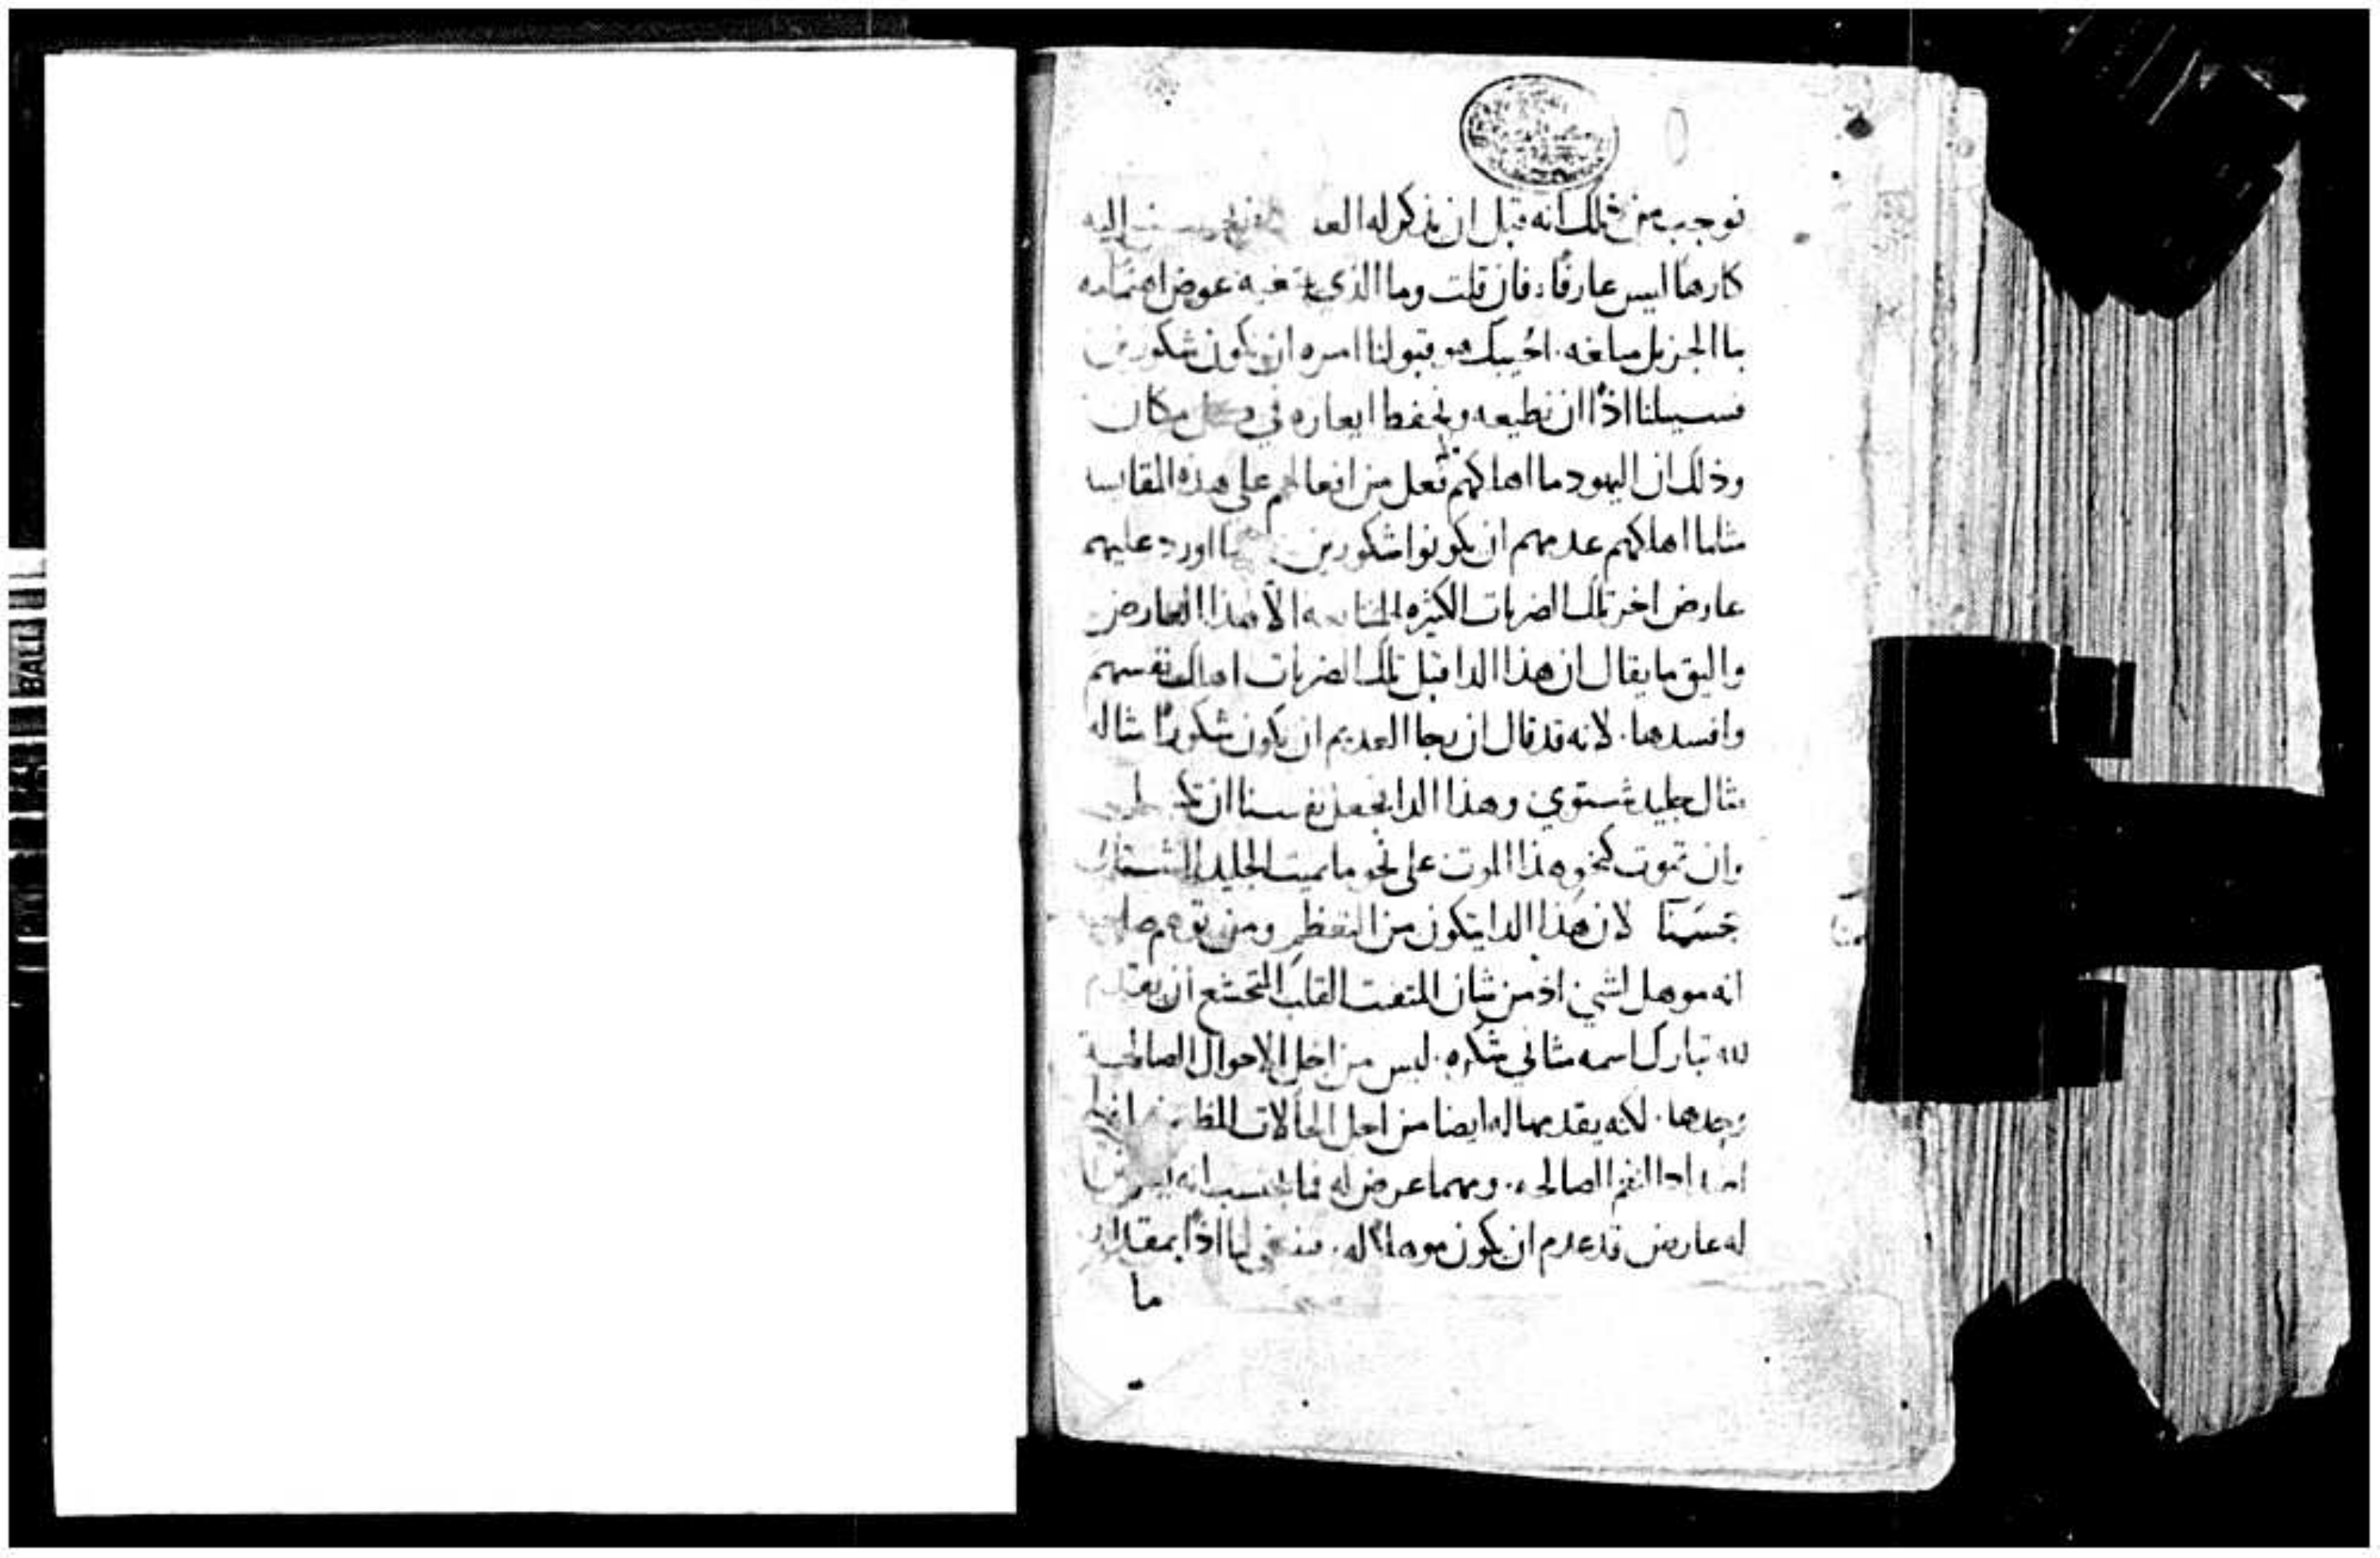 توجب من تلك انه قبل ان يذكر له العد اليه
كارها ليس عارفًا. فان قلت وما الذي عوض اهتمامه
باالجزيل مبلغه. اجيبك هو قبولنا امره ان نكون شكورين
فسبيلنا اذًا ان نطيعه ونحفظ ايعازه في كل مكان
وذلك ان اليهود ما اهلكهم فعل من افعالهم على هذه المقايسه
مثلما اهلكهم عدمهم ان يكونوا شكورين. ما اورد عليهم
عارض اخر تلك الضربات الكثيره المتتابعه الا هذا العارض
واليق ما يقال ان هذا الدا قبل تلك الضربات اهلك نفسهم
وافسدها. لانه قد قال ان رجا العديم ان يكون شكورًا مثاله
مثال جليد شتوي وهذا الدا يجعل نفسنا ان
وان تموت كنحو هذا الموت على نحو ما يميت الجليد الشتاوي
جسمنا لان هذا الدا يتكون من التعظم ومن توهم صاحبه
انه موهل لشي اذ من شان المتفتت القلب المتخشع ان يقدم
لله تبارك اسمه مثاني شكره. ليس من اجل الاحوال الصالحة
وحدها. لكنه يقدمها له ايضا من اجل الحالات المظنونه انها
اضداد النعم الصالحه. ومهما عرض له فما يحتسب انه يعرض
له عارض قد عدم ان يكون موهلاً له. فينبغي لنا اذًا بمقدار
ما
BALL